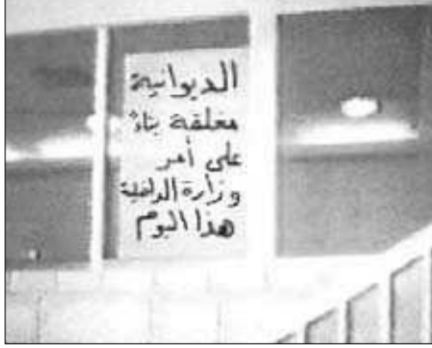 الديوانية
مغلقة بناءً
على أمر
وزارة الداخلية
هذا اليوم